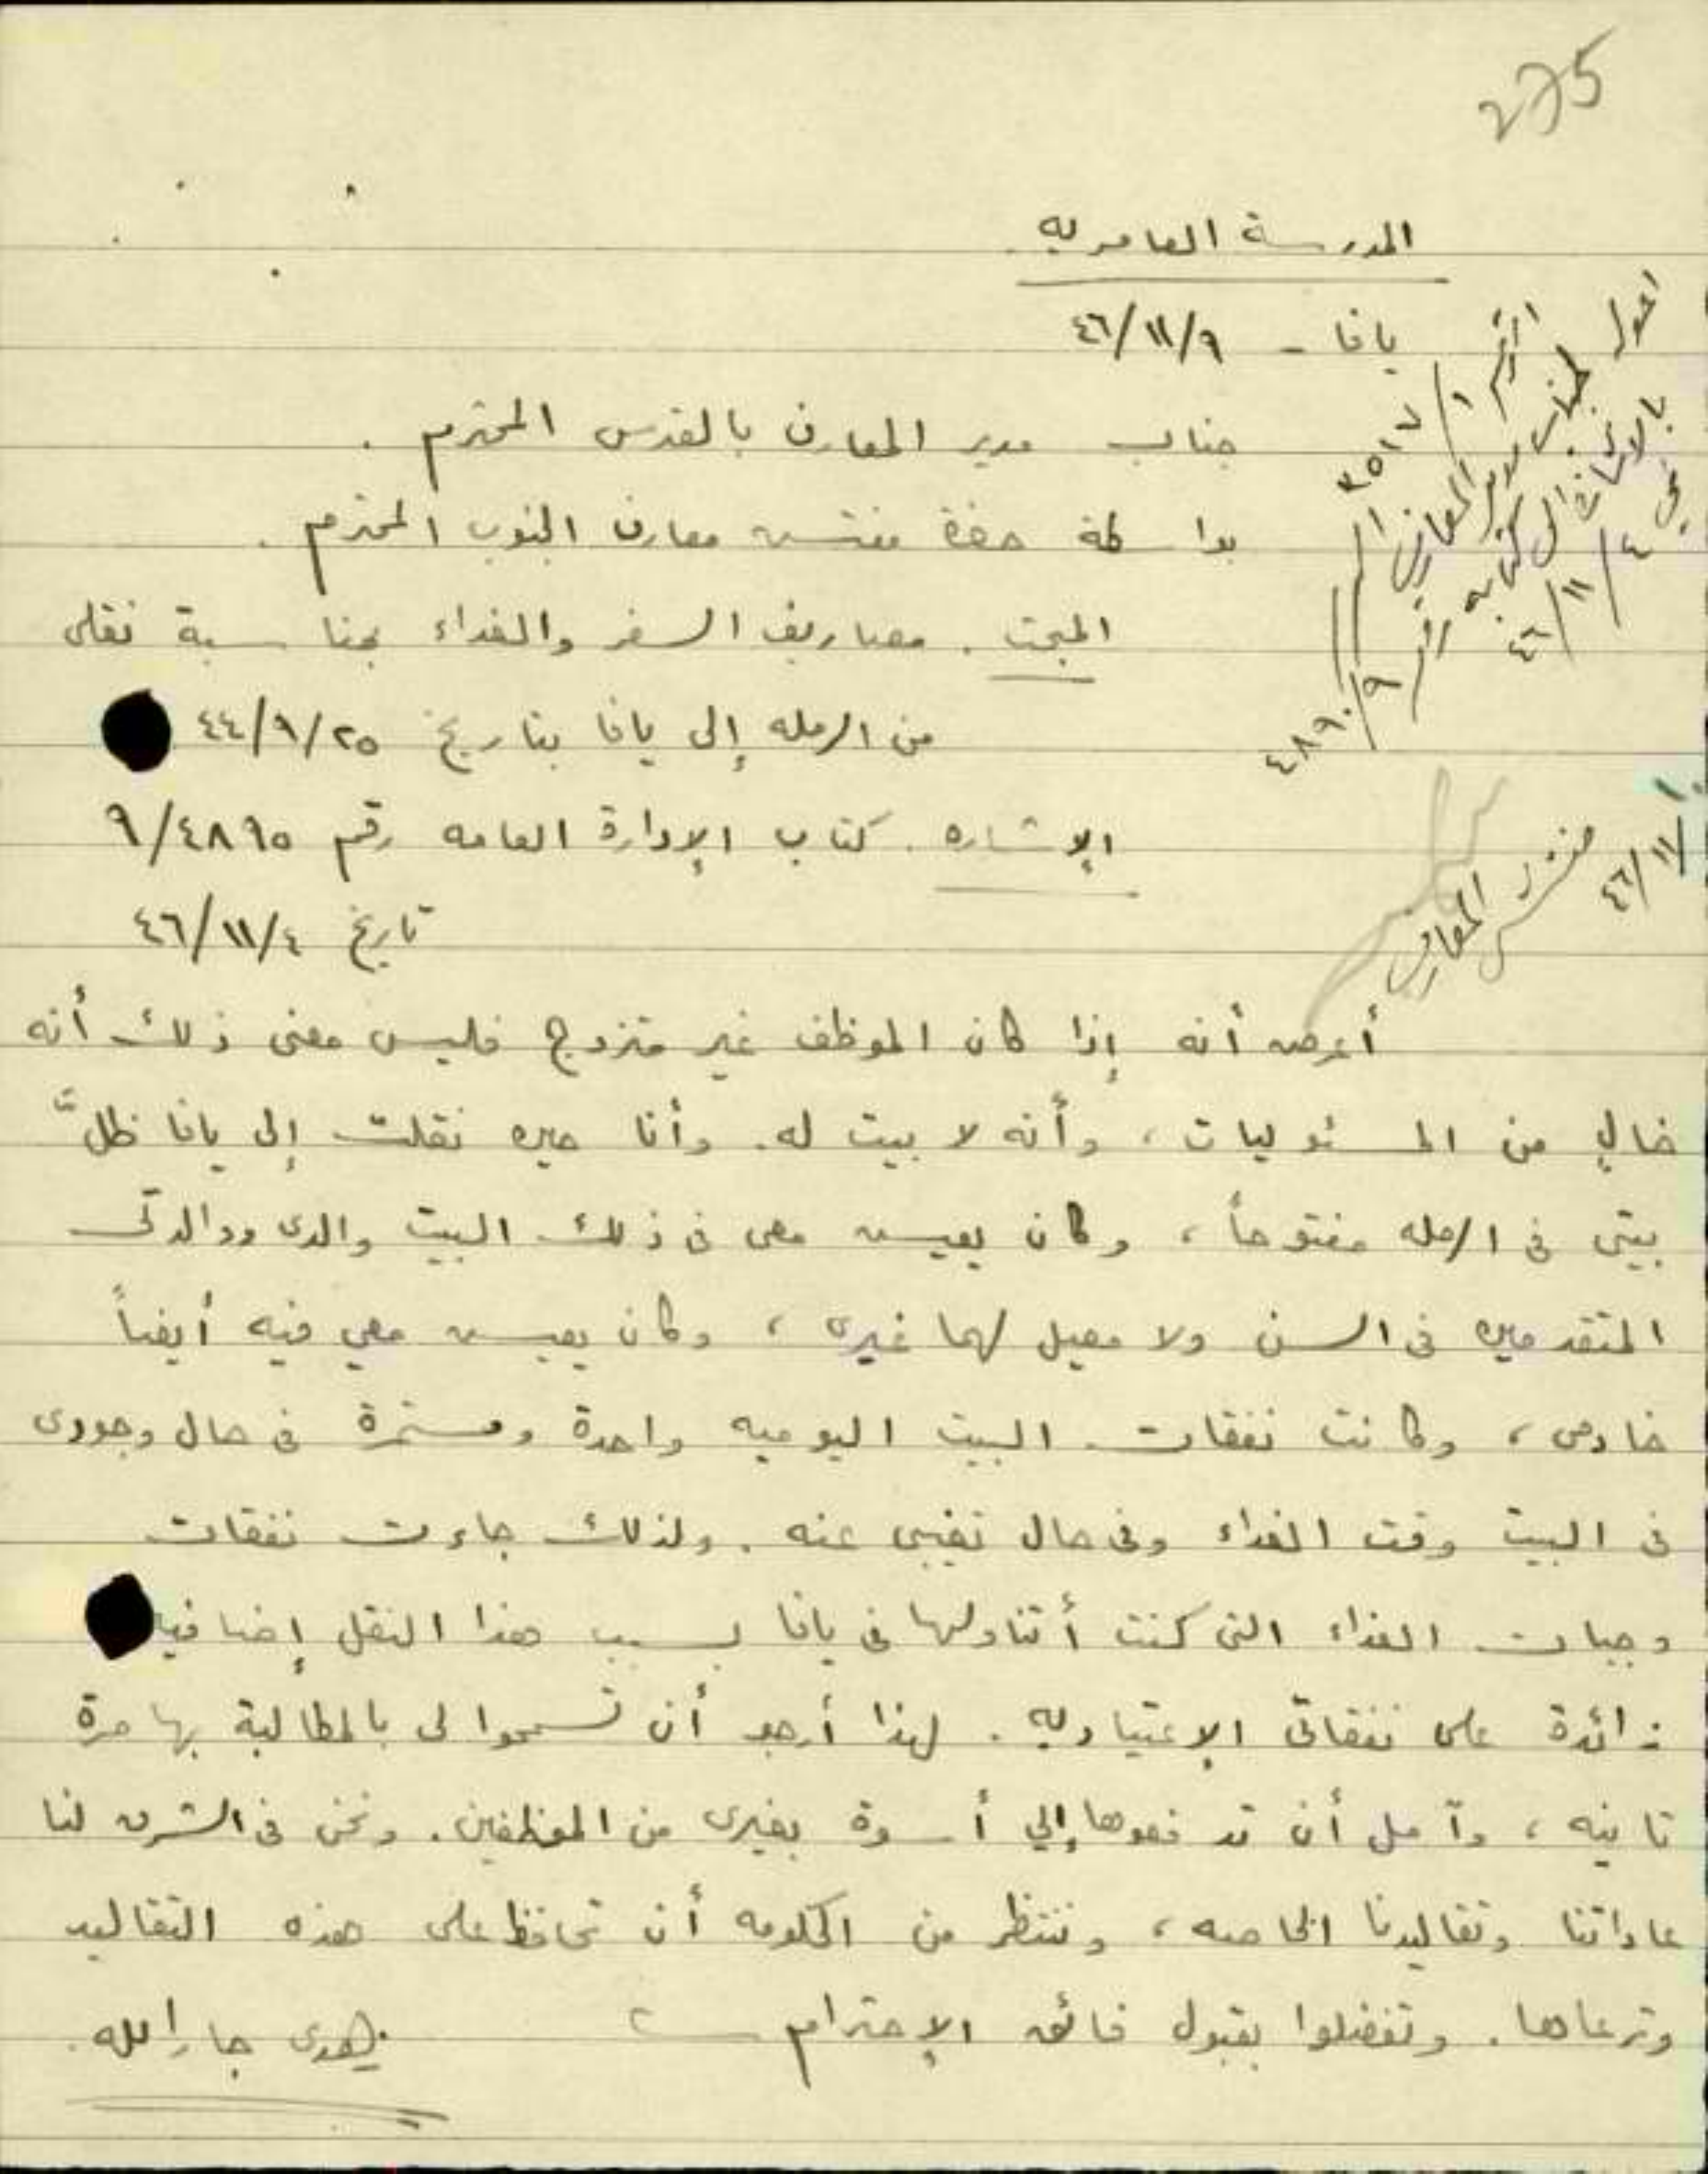 275
المدرسة العامريه
يافا - ٤٦/١١/٩
جناب مدير المعارف بالقدس المحترم .
بواسطة حضرة مفتش معارف الجنوب المحترم .
المبحث . مصاريف السفر والغداء بمناسبة نقلى
من الرمله إلى يافا بتاريخ ٤٤/٩/٢٥
الإشاره . كتاب الإدارة العامه رقم ٩/٤٨٩٥
تاريخ ٤٦/١١/٤
أعرض أنه إذا كان الموظف غير متزوج فليس معنى ذلك أنه
خالٍ من المسئوليات ، وأنه لا بيت له . وأنا حين نقلت إلى يافا ظلّ
بيتى فى الرمله مفتوحاً ، وكان يعيش معى فى ذلك البيت والدى ووالدتى
المتقدمين فى السن ولا معيل لهما غيرى ، وكان يعيش معي فيه أيضاً
خادمى ، وكانت نفقات البيت اليوميه واحدة ومستمرة فى حال وجودى
فى البيت وقت الغداء وفى حال تغيبى عنه . ولذلك جاءت نفقات
وجبات الغداء التى كنت أتناولها فى يافا بسبب هذا النقل إضافيه
زائدة على نفقاتى الإعتياديه . لهذا أرجو أن تسمحوا لى بالمطالبة بها مرة
ثانيه ، وآمل أن تدفعوها إلي أسوة بغيرى من الموظفين . ونحن فى الشرق لنا
عاداتنا وتقاليدنا الخاصه ، وننتظر من الحكومه أن تحافظ على هذه التقاليد
وترعاها . وتفضلوا بقبول فائق الإحترام
زهدى جارالله .
الرقم ١/٣٥١٧
احول لجناب مدير المعارف
بالاشارة الى كتابه رقم ٩/٤٨٩٠
في ٤٦/١١/٤
مفتش المعارف
٤٦/١١/١٠